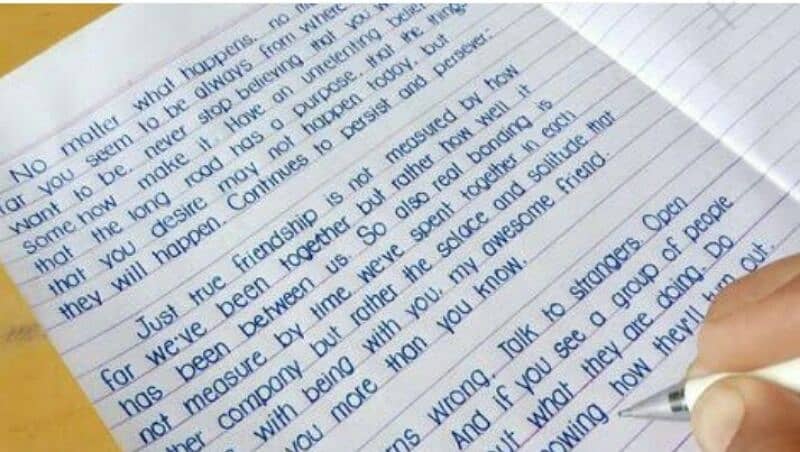 No matter what happens, no
far you seem to be always from where
want to be, never stop believing that you
some how make it. Have an unrelenting belief
that the long road has a purpose, that the things
that you desire may not happen today, but
they will happen. Continues to persist and persever.
Just true friendship is not measured by how
far we've been together but rather how well it
has been between us. So also real bonding is
not measure by time we've spent together in each
ther company but rather the solace and solitude that
with being with you, my awesome friend.
you more than you know.
ns wrong. Talk to strangers. Open
And if you see a group of people
ut what they are doing. Do
owing how they'll turn out.